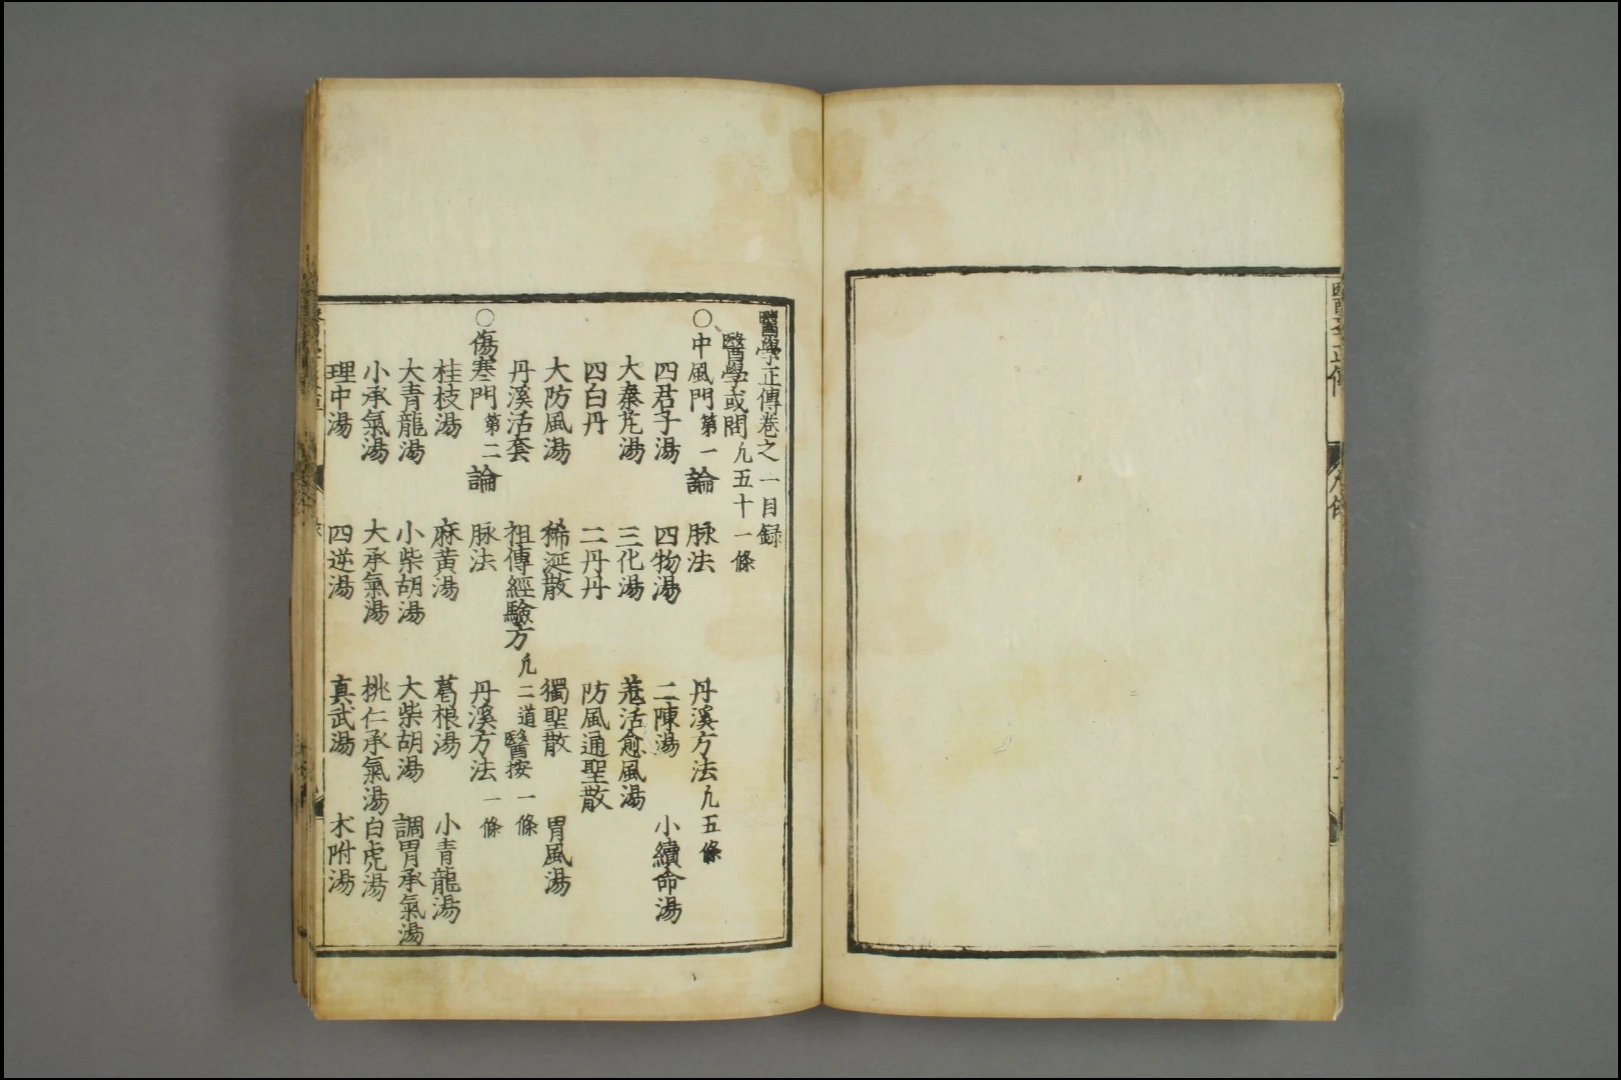 醫學正傳卷之一目録
醫學或問 凢五十一條
○中風門 第一 論 脉法 丹溪方法 凢五條
四君子湯 四物湯 二陳湯 小續命湯
大秦芃湯 三化湯 羌活愈風湯
四白丹 二丹丹 防風通聖散
大防風湯 稀涎散 獨聖散 胃風湯
丹溪活套 祖傳經驗方 凢二道 醫按 一條
○傷寒門 第二 論 脉法 丹溪方法 一條
桂枝湯 麻黄湯 葛根湯 小青龍湯
大青龍湯 小柴胡湯 大柴胡湯 調胃承氣湯
小承氣湯 大承氣湯 桃仁承氣湯 白虎湯
理中湯 四逆湯 真武湯 术附湯